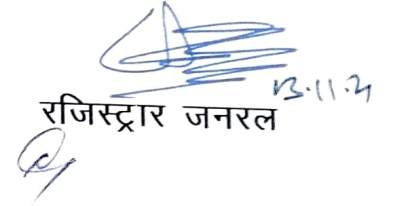 13.11.21
रजिस्ट्रार जनरल